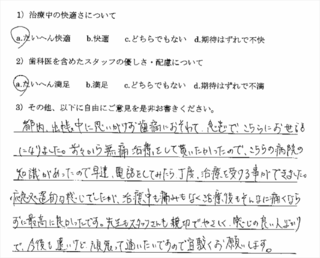 1) 治療中の快適さについて
a.たいへん快適 b.快適 c.どちらでもない d.期待はずれで不快
2) 歯科医を含めたスタッフの優しさ・配慮について
a.たいへん満足 b.満足 c.どちらでもない d.期待はずれで不満
3) その他、以下に自由にご意見を是非お書きください。
都内、出張中に思いがけず歯痛におそわれ、急きょでこちらにお世話
になりました。前々から無痛治療をして貰いたかったので、こちらの病院の
知識があったので早速、電話をしてみたら丁度、治療を受ける事ができました。
でしたが、治療中も痛みもなく治療後もそんなに痛くなら
ずに最高に良かったです。先生もスタッフさんも親切でやさしく、感じの良い人ばかり
で、今後も遠いけど、頑張って通いたいですので宜敷くお願いします。